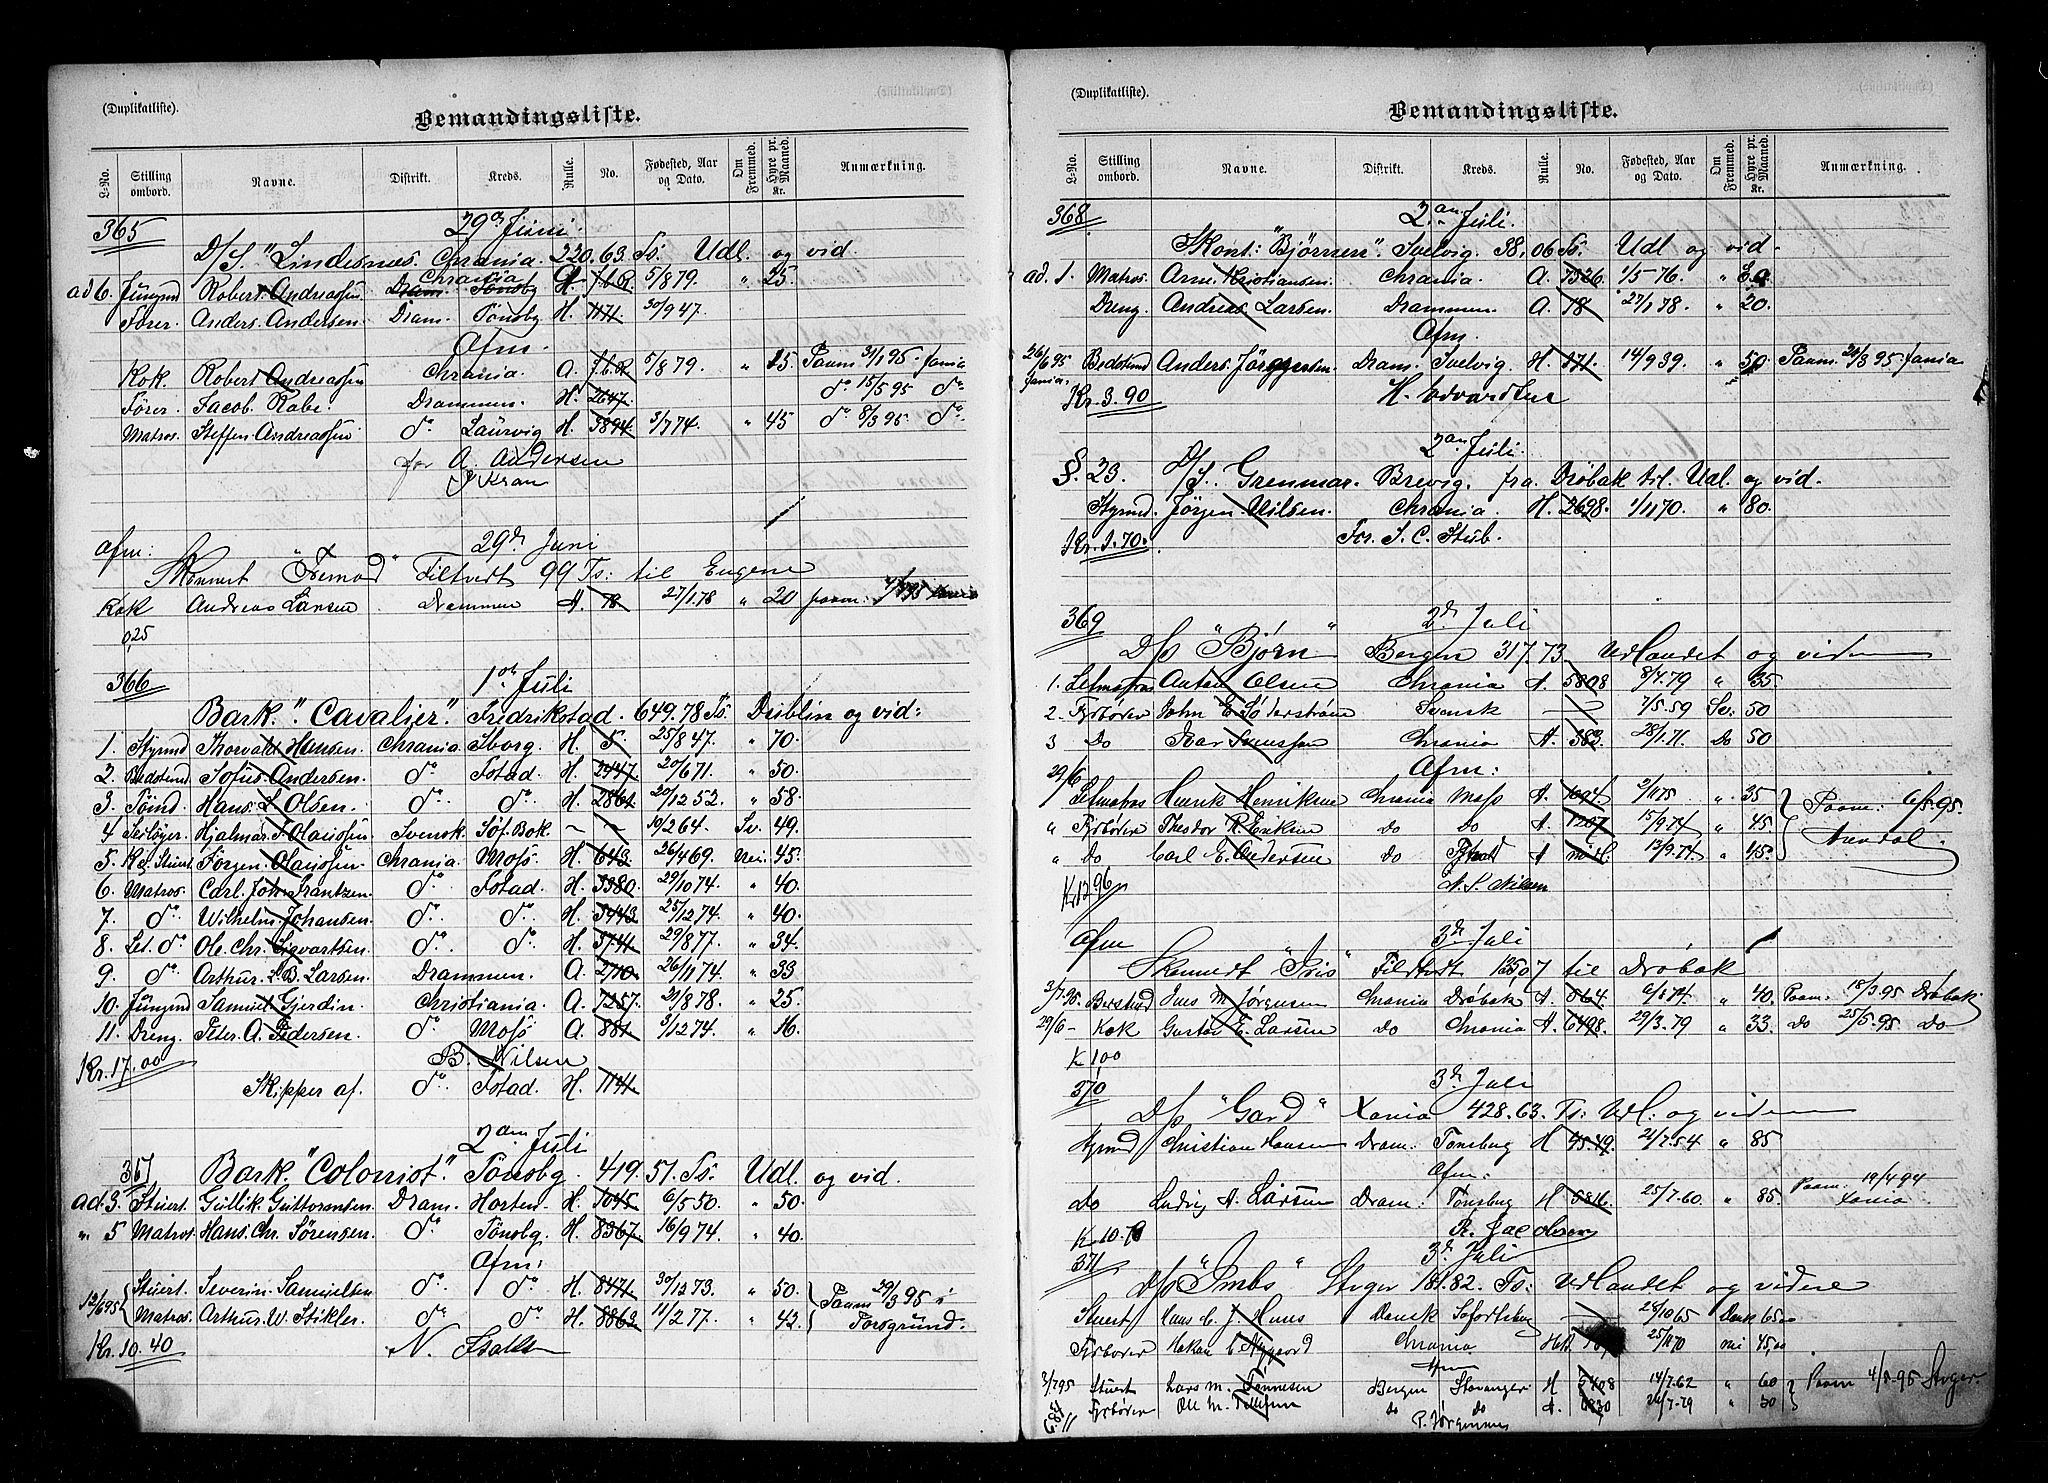 (Duplikatliste).
Bemandingsliste.
L-No. Stilling ombord. Navne. Distrikt. Kreds. Rulle. No. Fødested, Aar og Dato. Om Fremmed. Hyre pr. Maaned. Kr. Anmærkning.
365 29de Juni.
D/S. "Lindesnæs. Chrania. 220.63. Ts. Udl. og vid.
ad 6. Jüngmd Robert Andreassen Chrania 5/8 79 " 25
Fører. Anders. Andersen. Dram. Tönsbg H. 1171. 30/9 47.
Afm.
Kok. Robert Andreassen Chrania. A. f.b.R 5/8 79 " 15 Paam 31/1 95 Xania
Fører. Jacob. Rabe. Drammen. H. 2647. do 15/5 95 do
Matros. Steffen Andreassen do Laurvig H. 3894. 3/7 74. " 45 do 8/3 95 do
for A. Andersen
J Kran
afm: 29de Juni
Skonnert "Fremad" Filtvedt 99 Ts: til Eugene
Kok Andreas Larsen Drammen A. 78 27/1 78 " 20 paam:
0,25
366 1ste Juli
Bark. "Cavalier". Fredrikstad. 649.78 Ts. Dublin og vid:
1. Styrmd Thorvald Hansen. Chrania. Sborg. H. 5. 25/8 47. " 70.
2. Bedstmd Sofus Andersen. do Fstad. H. 2447. 20/6 71. " 50.
3. Tömd. Hans. L. Olsen. do do H. 2861 20/12 52. " 58.
4 Seilsyer. Hjalmar F. Olaussen Svensk. Söf. Bok. – – 19/2 64. Sv. 49.
5. K & Stuert Jörgen Olaussen. Chrania. Moss. H. 643. 26/4 69. Nei. 45.
6. Matros. Carl. Joh. Frantzen. do Fstad. H. 3380. 29/10 74. " 40.
7. do Wilhelm Johansen. do do H. 3443. 25/12 74. " 40.
8. Let. do Ole. Chr. Sigvartsen. do do H. 3741. 29/8 77. " 34.
9. do Arthur. L. B. Larsen. Drammen. A. 2710. 26/11 74. " 33
10. Jüngmd Samuel Gjerdin. Christiania. A. 7257. 21/8 78. " 25.
11. Dreng. Peter. A. Pedersen. do Moss A. 881. 3/12 74. " 16.
Kr. 17.00 B. Nilsen
Skipper af. do Fstad. H. 1141.
2den Juli
367 Bark. "Colonist". Tönsbg. 419.51. Ts. Udl. og vid.
ad 3. Stuert. Gullik Guttormsen. Dram. Horten. H. 1045. 6/5 50. " 50.
" 5 Matros. Hans. Chr. Sörensen. do Tönsbg. H. 8367. 16/9 74. " 40.
Afm:
12/6 95 Stuert. Severin Samuelsen do do H. 8471. 30/12 73. " 50. Paam 29/3 95 i
Matros. Arthur. W. Stikler. do do H. 8863. 11/2 77. " 42. Porsgrund.
Kr. 10.40 N.
(Duplikatliste).
Bemandingsliste.
L-No. Stilling ombord. Navne. Distrikt. Kreds. Rulle. No. Fødested, Aar og Dato. Om Fremmed. Hyre pr. Maaned. Kr. Anmærkning.
368 2den Juli.
Skont: "Björnen". Svelvig. 38.06 Ts. Udl og vid.
ad. 1. Matros. Arne Kristiansen. Chrania. A. 7326. 1/5 76. "
Dreng. Andreas Larsen. Drammen. A. 78. 27/1 78. " 20.
Afm.
26/6 95 Xania. Bedstmd Anders. Jörgensen. Dram. Svelvig. H. 871. 14/9 39. " 50. Paam. 21/3 95 Xania
Kr. 3.90 H. Edvardsen
2den Juli.
§. 23. D/S. Grenmar. Brevig. fra. Dröbak til. Udl. og vid.
Styrmd. Jörgen Nilsen. Chrania. H. 2698. 1/11 70. " 80.
Kr. 1.70. For. S. C. Stub.
369 2de Juli
D/S "Bjørn" Bergen 317.73. Udlandet og videre
1. Letmatros Anton Olsen Chrania A. 5808 8/4.79 " 35
2. Fyrbøder John E. Söderström Svensk – 7/5.59 Sv: 50
3 Do Ivar Svenssen Chrania A. 383. 28/1.71. Do 50
Afm:
29/6 Letmatros Henrik Henriksen Chrania Moss A. 1094. 2/11 75 " 35 Paam: 6/5.95.
" Fyrbøder Theodor R. Eriksen do do A 1207 15/9.74 " 45 Arendal.
" do Carl E. Andersen do Fstad A 13/9.71 " 45.
Kr 12.96 A. S. Nilsen
Afm 3de Juli
Skonnert "Iris" Fildtvedt 125.07 til Drøbak
3/7.95 Bedstmd Jens M. Jørgensen Chrania Drøbak A. 864. " 40. Paam: 18/3.95 Drøbak.
29/6 – Kok Gustav E. Larsen do Chrania A. 6498. 29/3.79 " 33. Do 25/5.95. Do
K 1.00
370 3de Juli
D/S "Gard" Xania 428.63. Ts: Udl: og videre
Styrmd Christian Hansen Dram: Tønsberg H 4549. 21/7.54 " 85
Afm:
do Ludvig A. Larsen Dram: Tønsberg H 5816. 25/7.60 " 85 Paam: 19/4 94 Xania
Kr 10.70 R. Jacobsen
371 3de Juli
D/S "Imbs" Stvger 181.82. Ts: Udlandet og videre
Stuert Hans C. J. Huus Dansk 28/10 65 Dansk 65.00
Fyrbøder Hakan C. Nygaard Chrania 25/11 70 nei 45,00
Afm
3/7 95 Stuert Lars M. Tønnesen Bergen Stavanger H 5408 14/7.62 " 60 Paam 4/5.95 Stvger.
Fyrbøder Ole M. Tollefsen do do A. 6830 26/7.79 " 50
6.84 P. Jørgensen